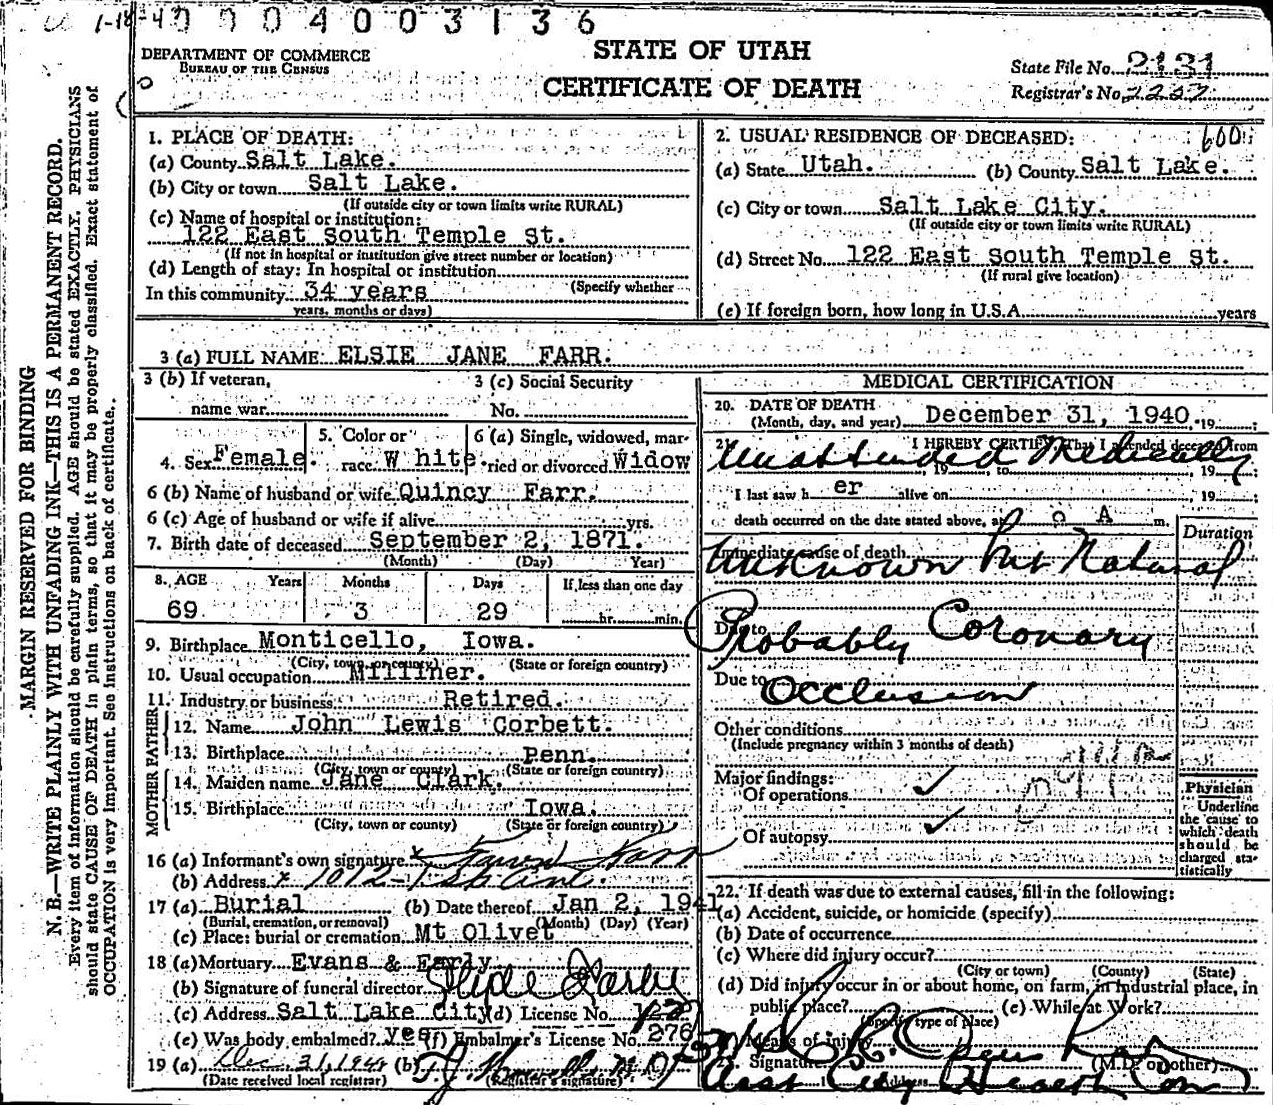 0004003136
DEPARTMENT OF COMMERCE
BUREAU OF THE CENSUS
STATE OF UTAH
CERTIFICATE OF DEATH
State File No. 2131
Registrar's No. 2267
MARGIN RESERVED FOR BINDING
N. B.—WRITE PLAINLY WITH UNFADING INK—THIS IS A PERMANENT RECORD.
Every item of information should be carefully supplied. AGE should be stated EXACTLY. PHYSICIANS
should state CAUSE OF DEATH in plain terms, so that it may be properly classified. Exact statement of
OCCUPATION is very important. See instructions on back of certificate.
1. PLACE OF DEATH:
(a) County Salt Lake.
(b) City or town Salt Lake.
(If outside city or town limits write RURAL)
(c) Name of hospital or institution:
122 East South Temple St.
(If not in hospital or institution give street number or location)
(d) Length of stay: In hospital or institution
(Specify whether
In this community 34 years
years, months or days)
2. USUAL RESIDENCE OF DECEASED: 600
(a) State Utah. (b) County Salt Lake.
(c) City or town Salt Lake City.
(If outside city or town limits write RURAL)
(d) Street No. 122 East South Temple St.
(If rural give location)
(e) If foreign born, how long in U.S.A. years
3 (a) FULL NAME ELSIE JANE FARR.
3 (b) If veteran,
name war
3 (c) Social Security
No.
4. Sex Female.
5. Color or
race White.
6 (a) Single, widowed, mar-
ried or divorced Widow
6 (b) Name of husband or wife Quincy Farr.
6 (c) Age of husband or wife if alive yrs.
7. Birth date of deceased September 2, 1871.
(Month) (Day) Year)
8. AGE Years Months Days If less than one day
69 3 29 hr. min.
9. Birthplace Monticello, Iowa.
(City, town, or county) (State or foreign country)
10. Usual occupation Milliner.
11. Industry or business Retired.
FATHER
12. Name John Lewis Corbett.
13. Birthplace Penn.
(City, town or county) (State or foreign country)
MOTHER
14. Maiden name Jane Clark.
15. Birthplace Iowa.
(City, town or county) (State or foreign country)
16 (a) Informant's own signature Farr
(b) Address
17 (a) Burial (b) Date thereof Jan 2, 1941
(Burial, cremation, or removal) (Month) (Day) (Year)
(c) Place: burial or cremation Mt Olivet
18 (a) Mortuary Evans & Early
(b) Signature of funeral director
(c) Address Salt Lake City (d) License No.
(e) Was body embalmed? yes (f) Embalmer's License No. 276
19 (a) Dec. 31, 1940 (b) T. J. Howells M.D.
(Date received local registrar) (Registrar's signature)
MEDICAL CERTIFICATION
20. DATE OF DEATH
(Month, day, and year) December 31, 1940. 19
21. I HEREBY CERTIFY That I attended deceased from
Unattended Medically
19 to 19
I last saw her alive on , 19
death occurred on the date stated above, at A m.
Duration
Immediate cause of death
Unknown but Natural
Due to
Probably Coronary
Due to Occlusion
Other conditions
(Include pregnancy within 3 months of death)
Major findings:
Of operations ✓
Of autopsy ✓
Physician
Underline
the cause to
which death
should be
charged sta-
tistically
22. If death was due to external causes, fill in the following:
(a) Accident, suicide, or homicide (specify)
(b) Date of occurrence
(c) Where did injury occur?
(City or town) (County) (State)
(d) Did injury occur in or about home, on farm, in industrial place, in
public place? (e) While at Work?
(Specify type of place)
Means of injury
Signature (M.D. or other)
Asst City Health Com
Address